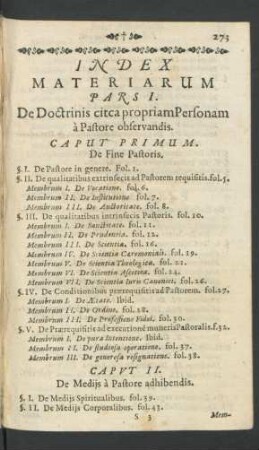 273
INDEX
MATERIARUM
PARS I.
De Doctrinis circa propriam Personam
à Pastore observandis.
CAPUT PRIMUM.
De Fine Pastoris.
§. I. De Pastore in genere. Fol. 1.
§. II. De qualitatibus extrinsecis ad Pastorem requisitis. fol. 5.
Membrum I. De Vocatione. fol. 6.
Membrum II. De Institutione fol. 7.
Membrum III. De Authoritate. fol. 8.
§. III. De qualitatibus intrinsecis Pastoris. fol. 10.
Membrum I. De Sanctitate. fol. 11.
Membrum II. De Prudentia. fol. 12.
Membrum III. De Scientia. fol. 16.
Membrum IV. De Scientia Caremoniali. fol. 19.
Membrum V. De Scientia Theologica. fol. 21.
Membrum VI. De Scientia Ascetica. fol. 24.
Membrum VII. De Scientia Juris Canonici. fol. 26.
§. IV. De Conditionibus prærequisitis ad Pastorem. fol. 27.
Membrum I. De Ætate. Ibid.
Membrum II. De Ordine. fol. 28.
Membrum III. De Professione Fidei. fol. 30.
§. V. De Prærequisitis ad executionē muneris Pastoralis. f. 32.
Membrum I. De pura Intentione. Ibid.
Membrum II. De studiosa operatione. fol. 37.
Membrum III. De generosa resignatione. fol. 38.
CAPUT II.
De Medijs à Pastore adhibendis.
§. I. De Medijs Spiritualibus. fol. 39.
§. II. De Medijs Corporalibus. fol. 43.
S 3 Mem-